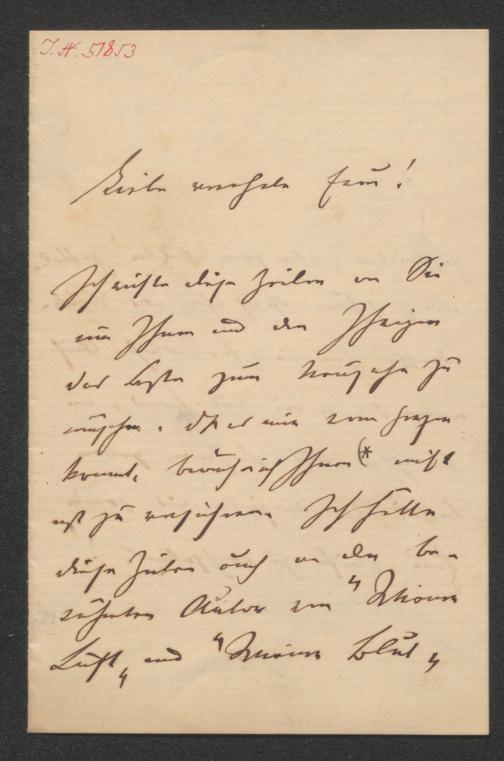 I.N. 51853
Liebe verehrte Frau!
Ich richte diese Zeilen an Sie
um Ihnen und den Ihrigen
das Beste zum Neujahr zu
wünschen. Daß es mir vom Herzen
kommt, brauch ich Ihnen (* nicht
erst zu versichern. Ich hätte
diese Zeilen auch an den be-
rühmten Autor von "Wiener
Luft" und "Wiener Blut"